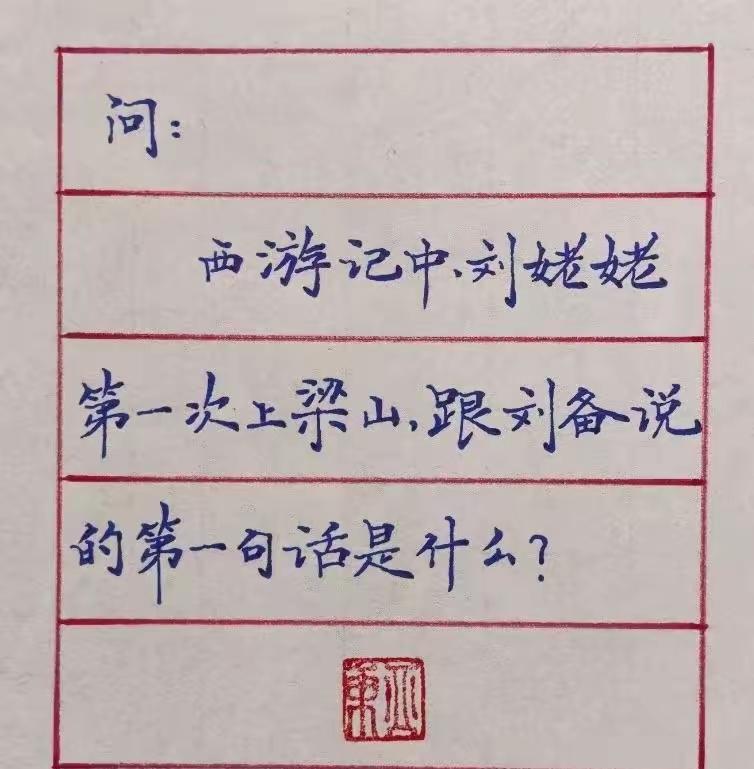 问：
西游记中、刘姥姥
第一次上梁山，跟刘备说
的第一句话是什么？